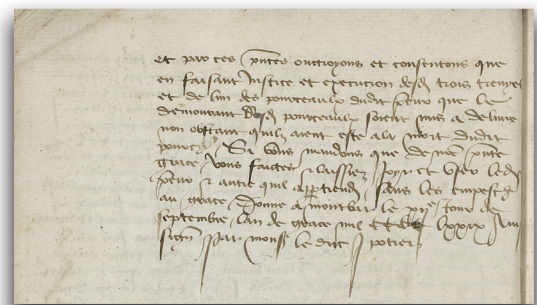 et par ces pntes ouctroyons et consentons que
en faisant Justice et execution desd trois truyes
et de lun des pourceaulx dudit prieur que le
demourant desd pourceaulx soient mis a delivre
non obstant quilz aient este a la mort dudit
pourch Si vous mandons que de nre pnte
grace vous faictes et laissiez Joyr et user led
prieur et autre quil appartiendra sans les empesch
au grace Donne a montbar le xije Jour de
septembre lan de grace mil lxxix
Signe Par monsr le duc J potier